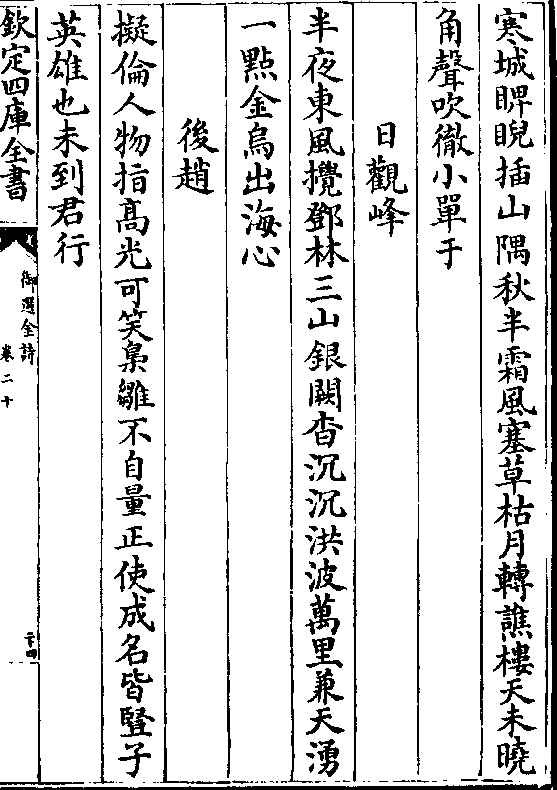 寒城睥睨插山隅秋半霜風塞草枯月轉譙樓天未曉
角聲吹徹小單于
日觀峰
半夜東風攪鄧林三山銀闕杳沉沉洪波萬里兼天湧
一點金烏出海心
後趙
擬倫人物指高光可笑梟雛不自量正使成名皆豎子
英雄也未到君行
欽定四庫全書
御選金詩
卷二十
二十四